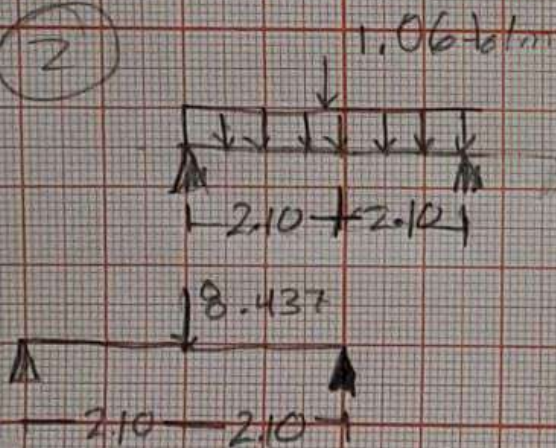 2
1.06 to/m
2.10 2.10
8.437
2.10 2.10